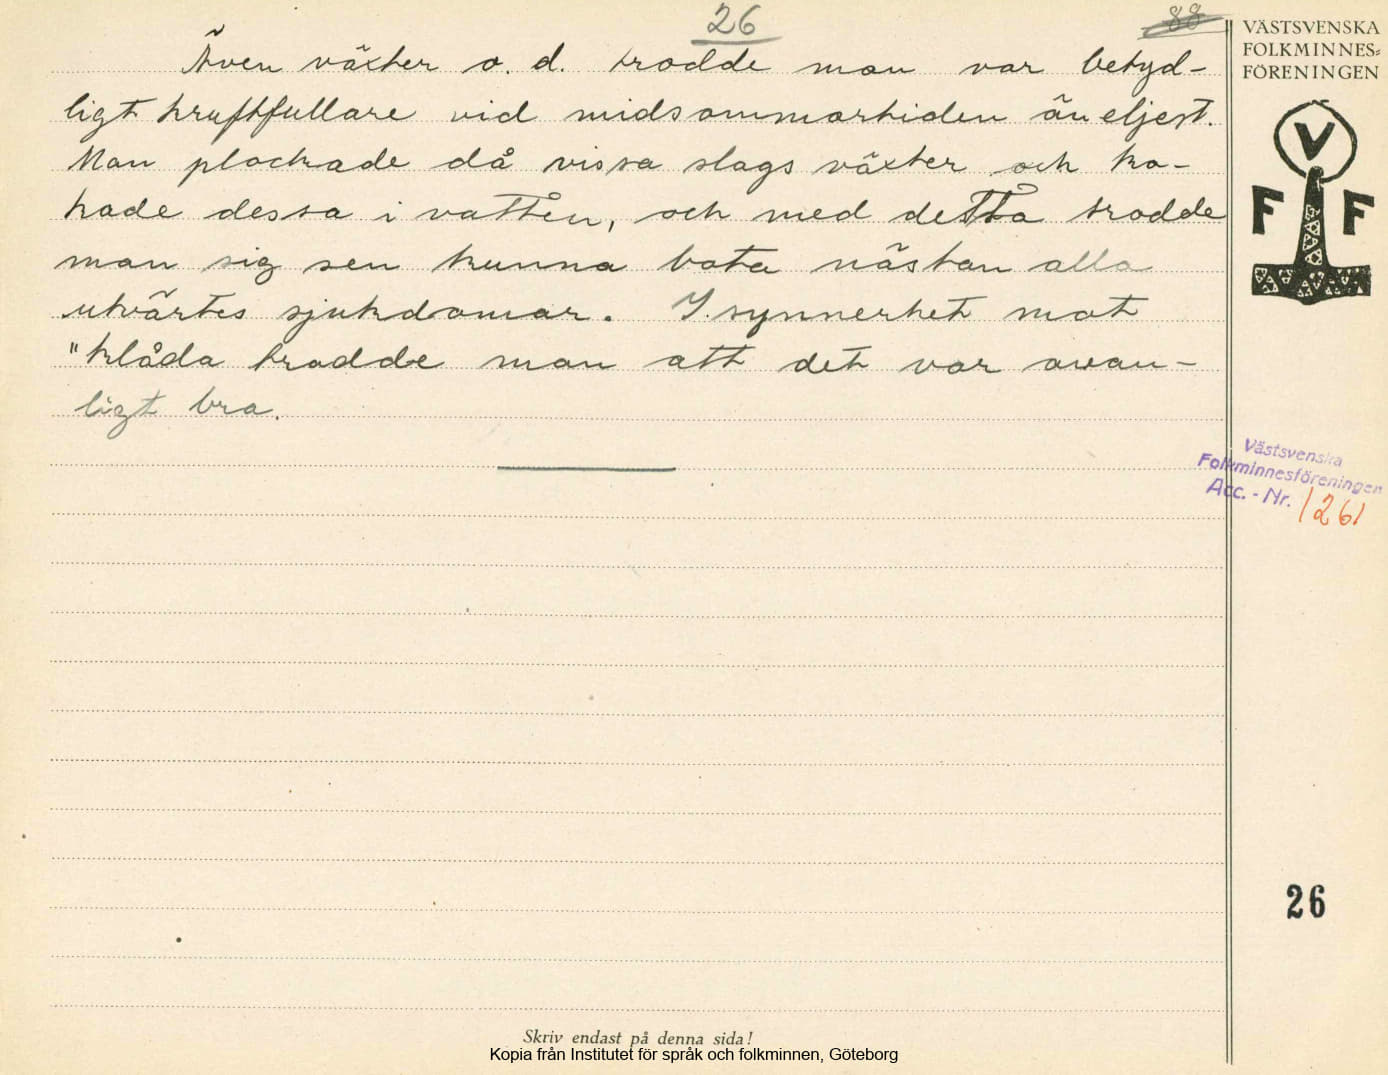 26
88
Även växter o. d. trodde man var betyd-
ligt kraftfullare vid midsommartiden än eljest.
Man plockade då vissa slags växter och ko-
kade dessa i vatten, och med detta trodde
man sig sen kunna bota nästan alla
utvärtes sjukdomar. I synnerhet mot
"klåda trodde man att det var ovan-
ligt bra.
VÄSTSVENSKA
FOLKMINNES-
FÖRENINGEN
V
F F
Västsvenska
Folkminnesföreningen
Acc. - Nr. 1261
26
Skriv endast på denna sida!
Kopia från Institutet för språk och folkminnen, Göteborg